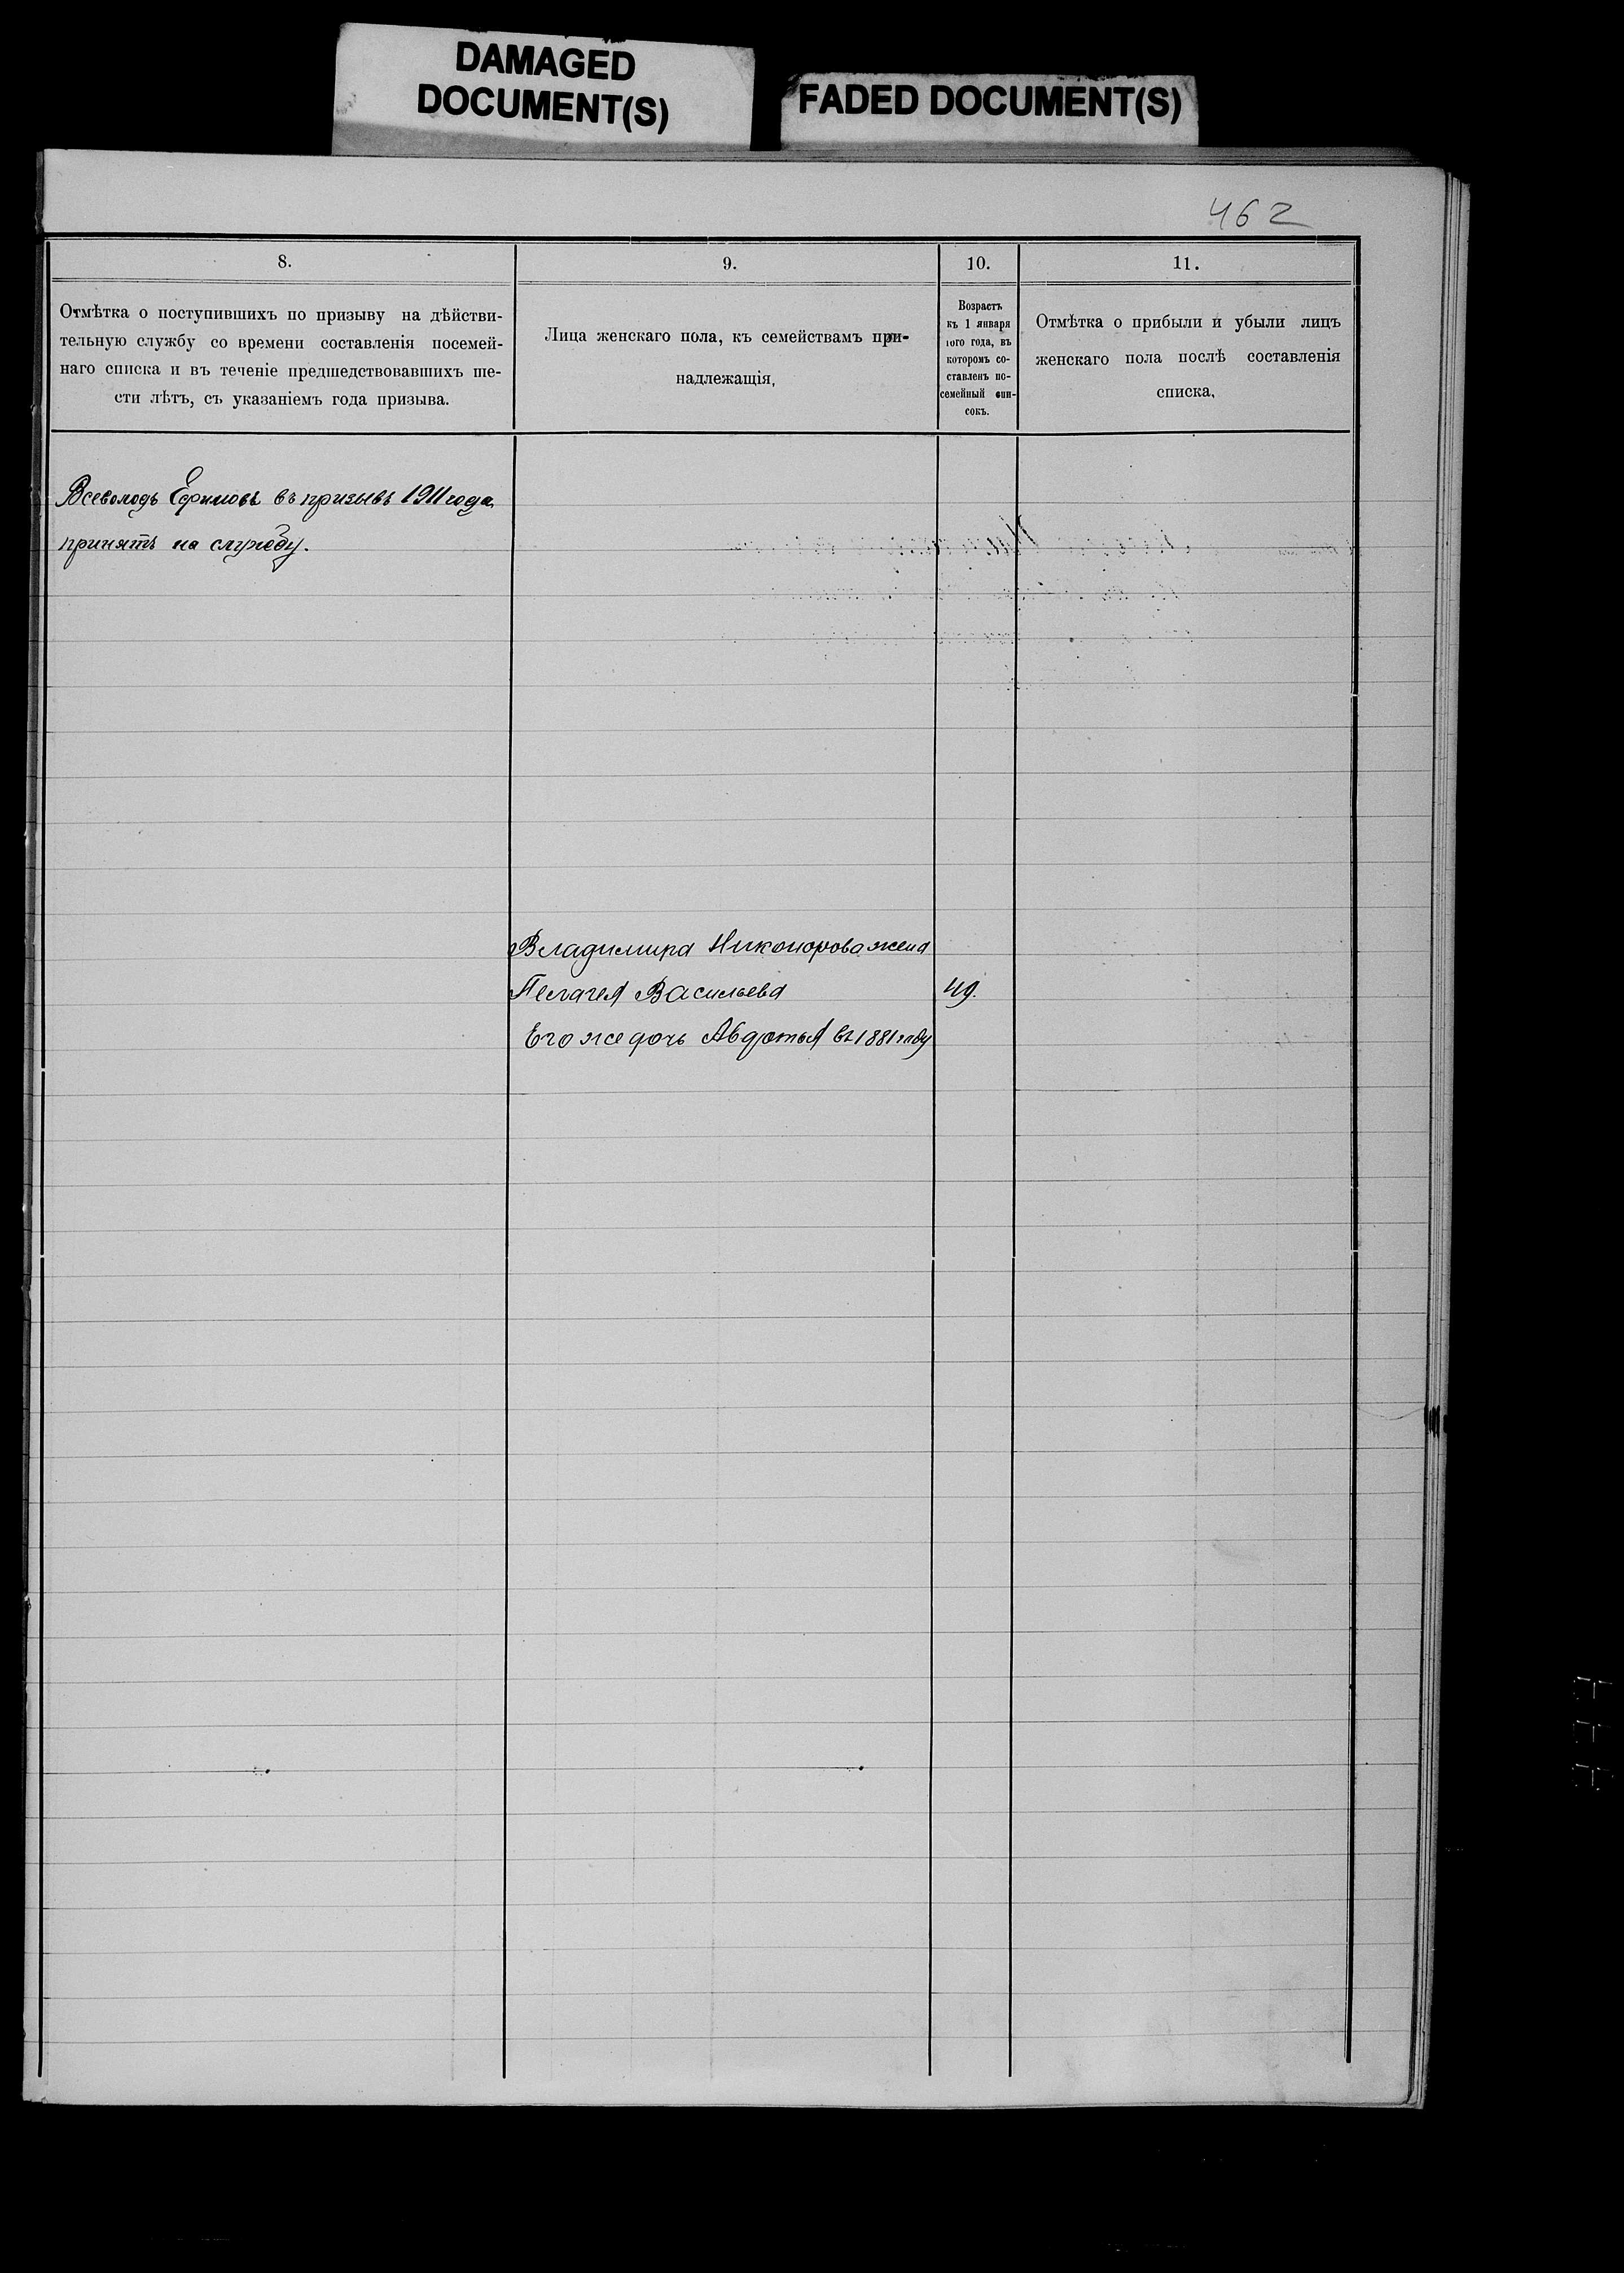 DAMAGED
DOCUMENT(S)
FADED DOCUMENT(S)
462
8.
9.
10.
11.
Отмѣтка о поступившихъ по призыву на дѣйстви-
тельную службу со времени составленія посемей-
наго списка и въ теченіе предшедствовавшихъ ше-
сти лѣтъ, съ указаніемъ года призыва.
Лица женскаго пола, къ семействамъ при-
надлежащія,
Возрастъ
къ 1 января
того года, въ
которомъ со-
ставленъ по-
семейный спи-
сокъ.
Отмѣтка о прибыли и убыли лицъ
женскаго пола послѣ составленія
списка,
Всеволодъ Ефимовъ въ призывъ 1911 года
принятъ на службу.
Владимира Никонорова жена
Пелагея Васильева 49.
Его же дочь Авдотья въ 1881 году